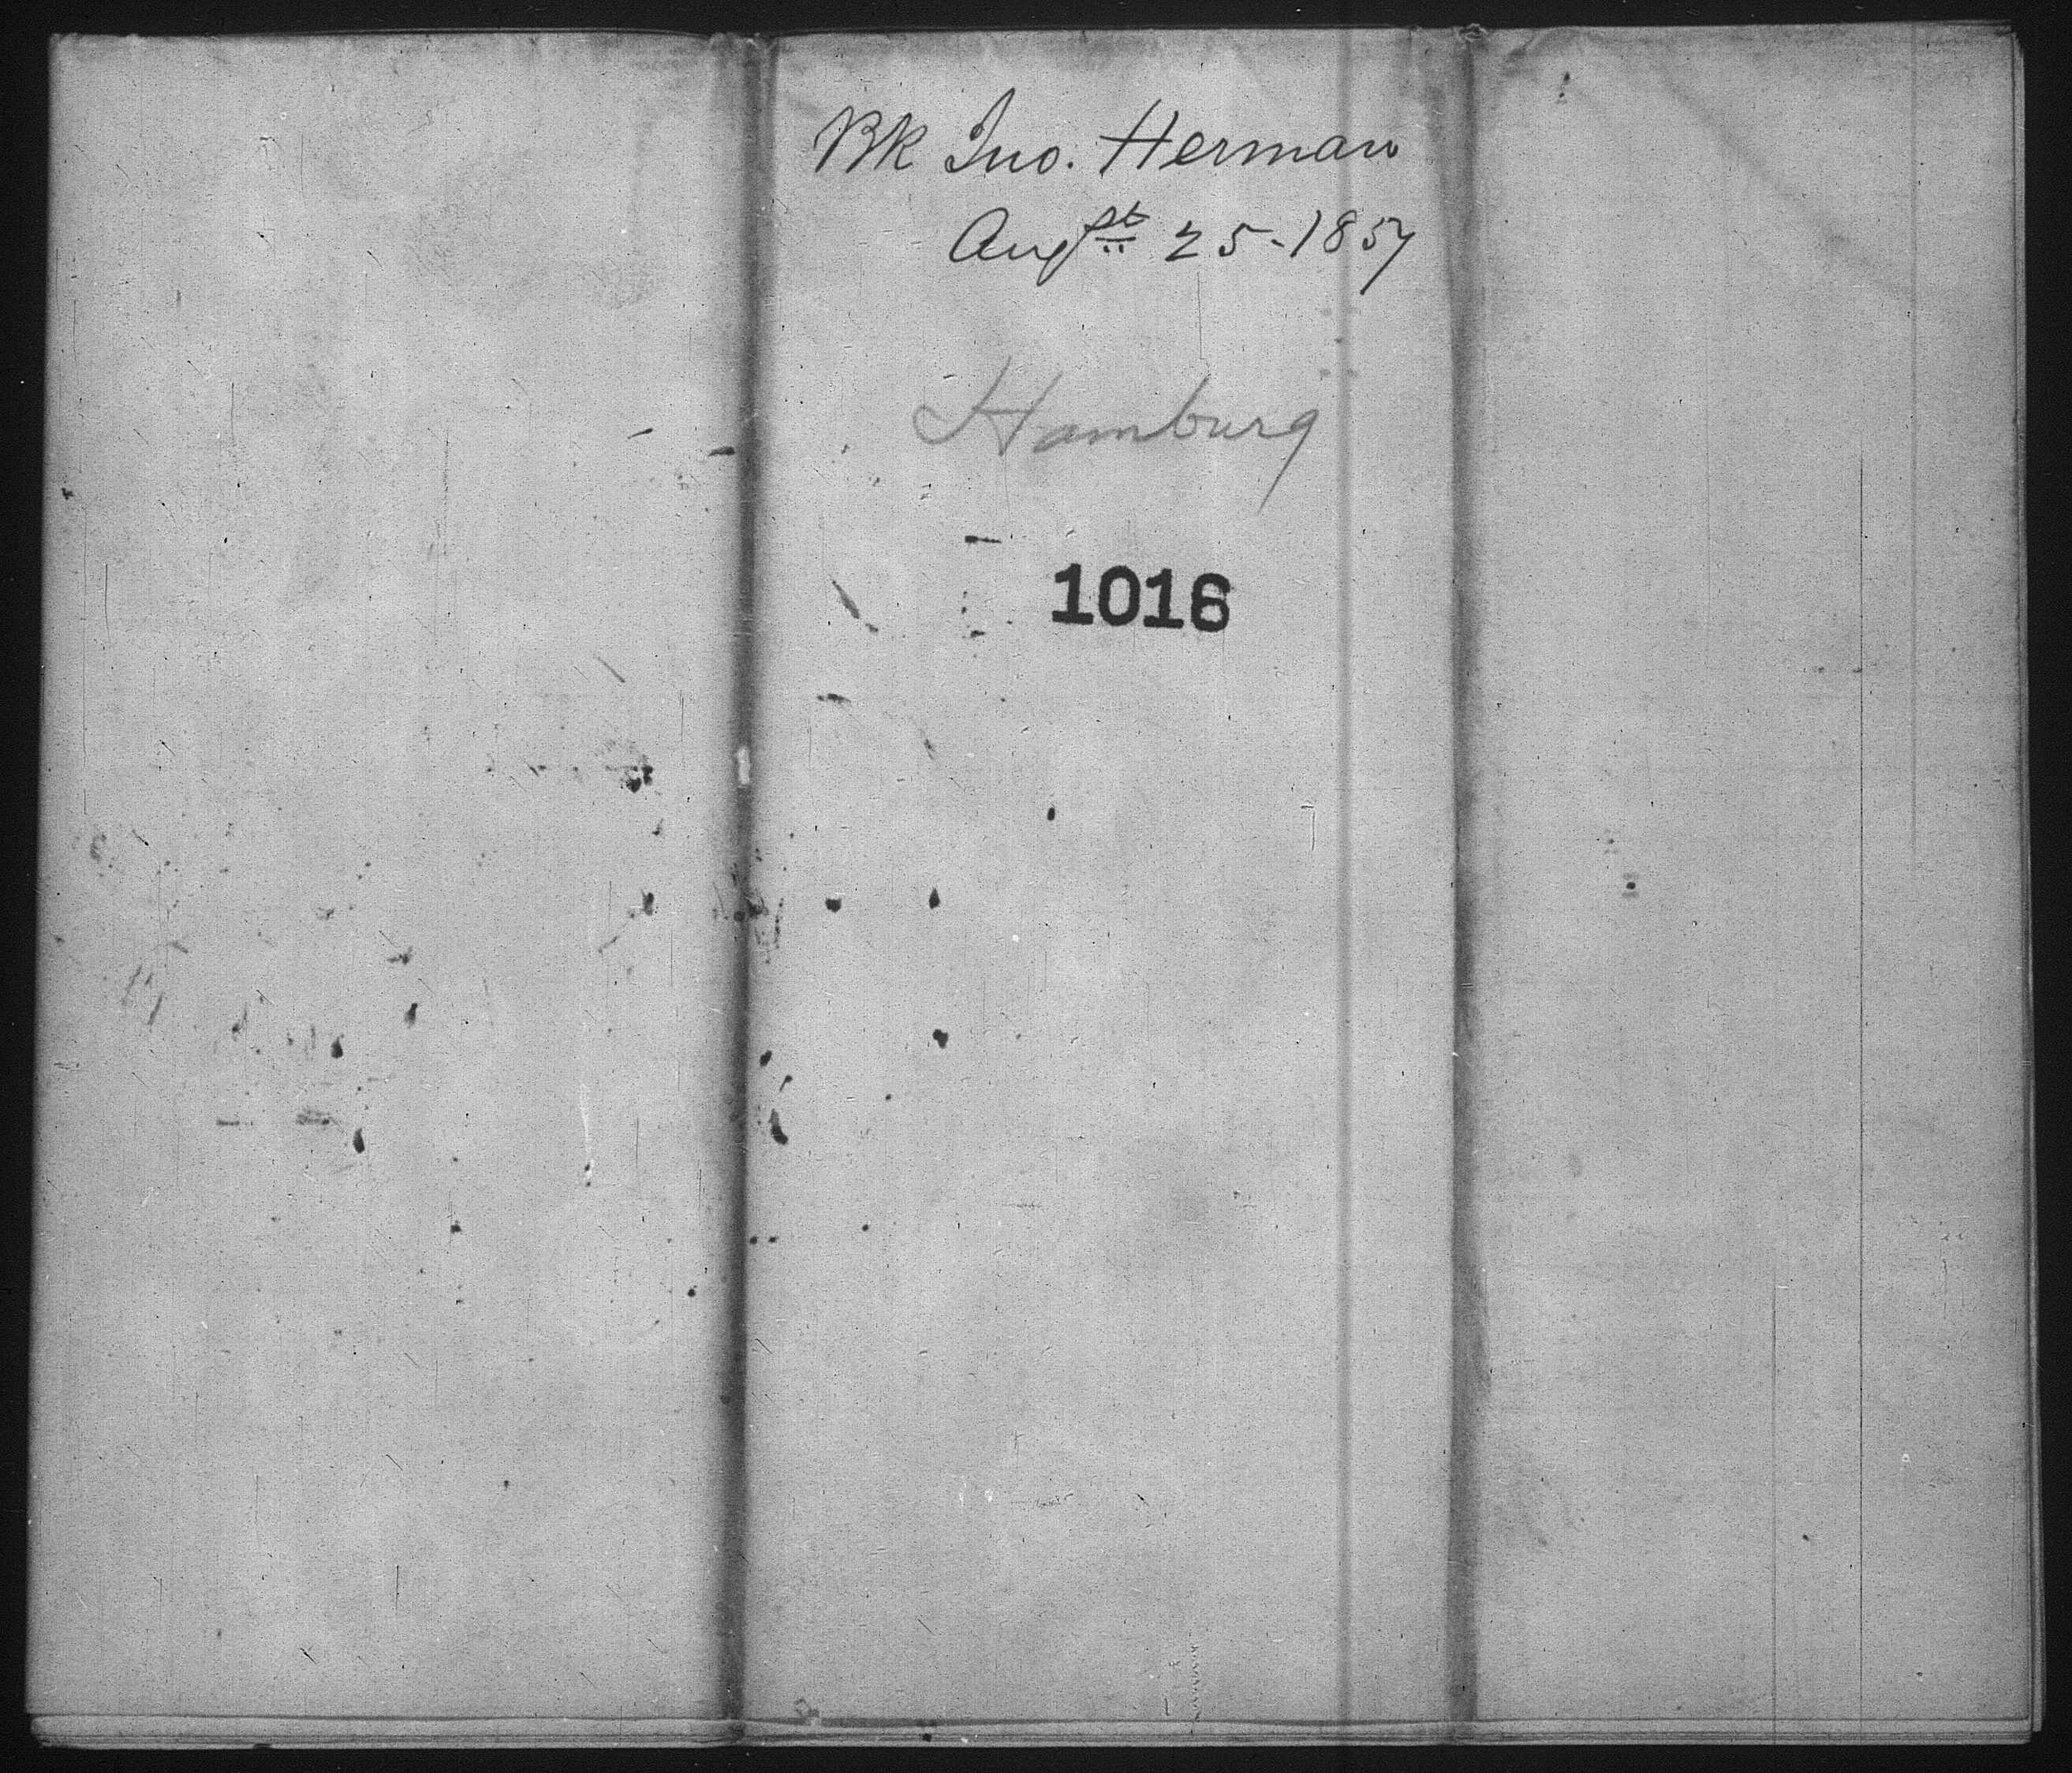 Bk Jno. Herman
Augst 25-1857
Hamburg
1016